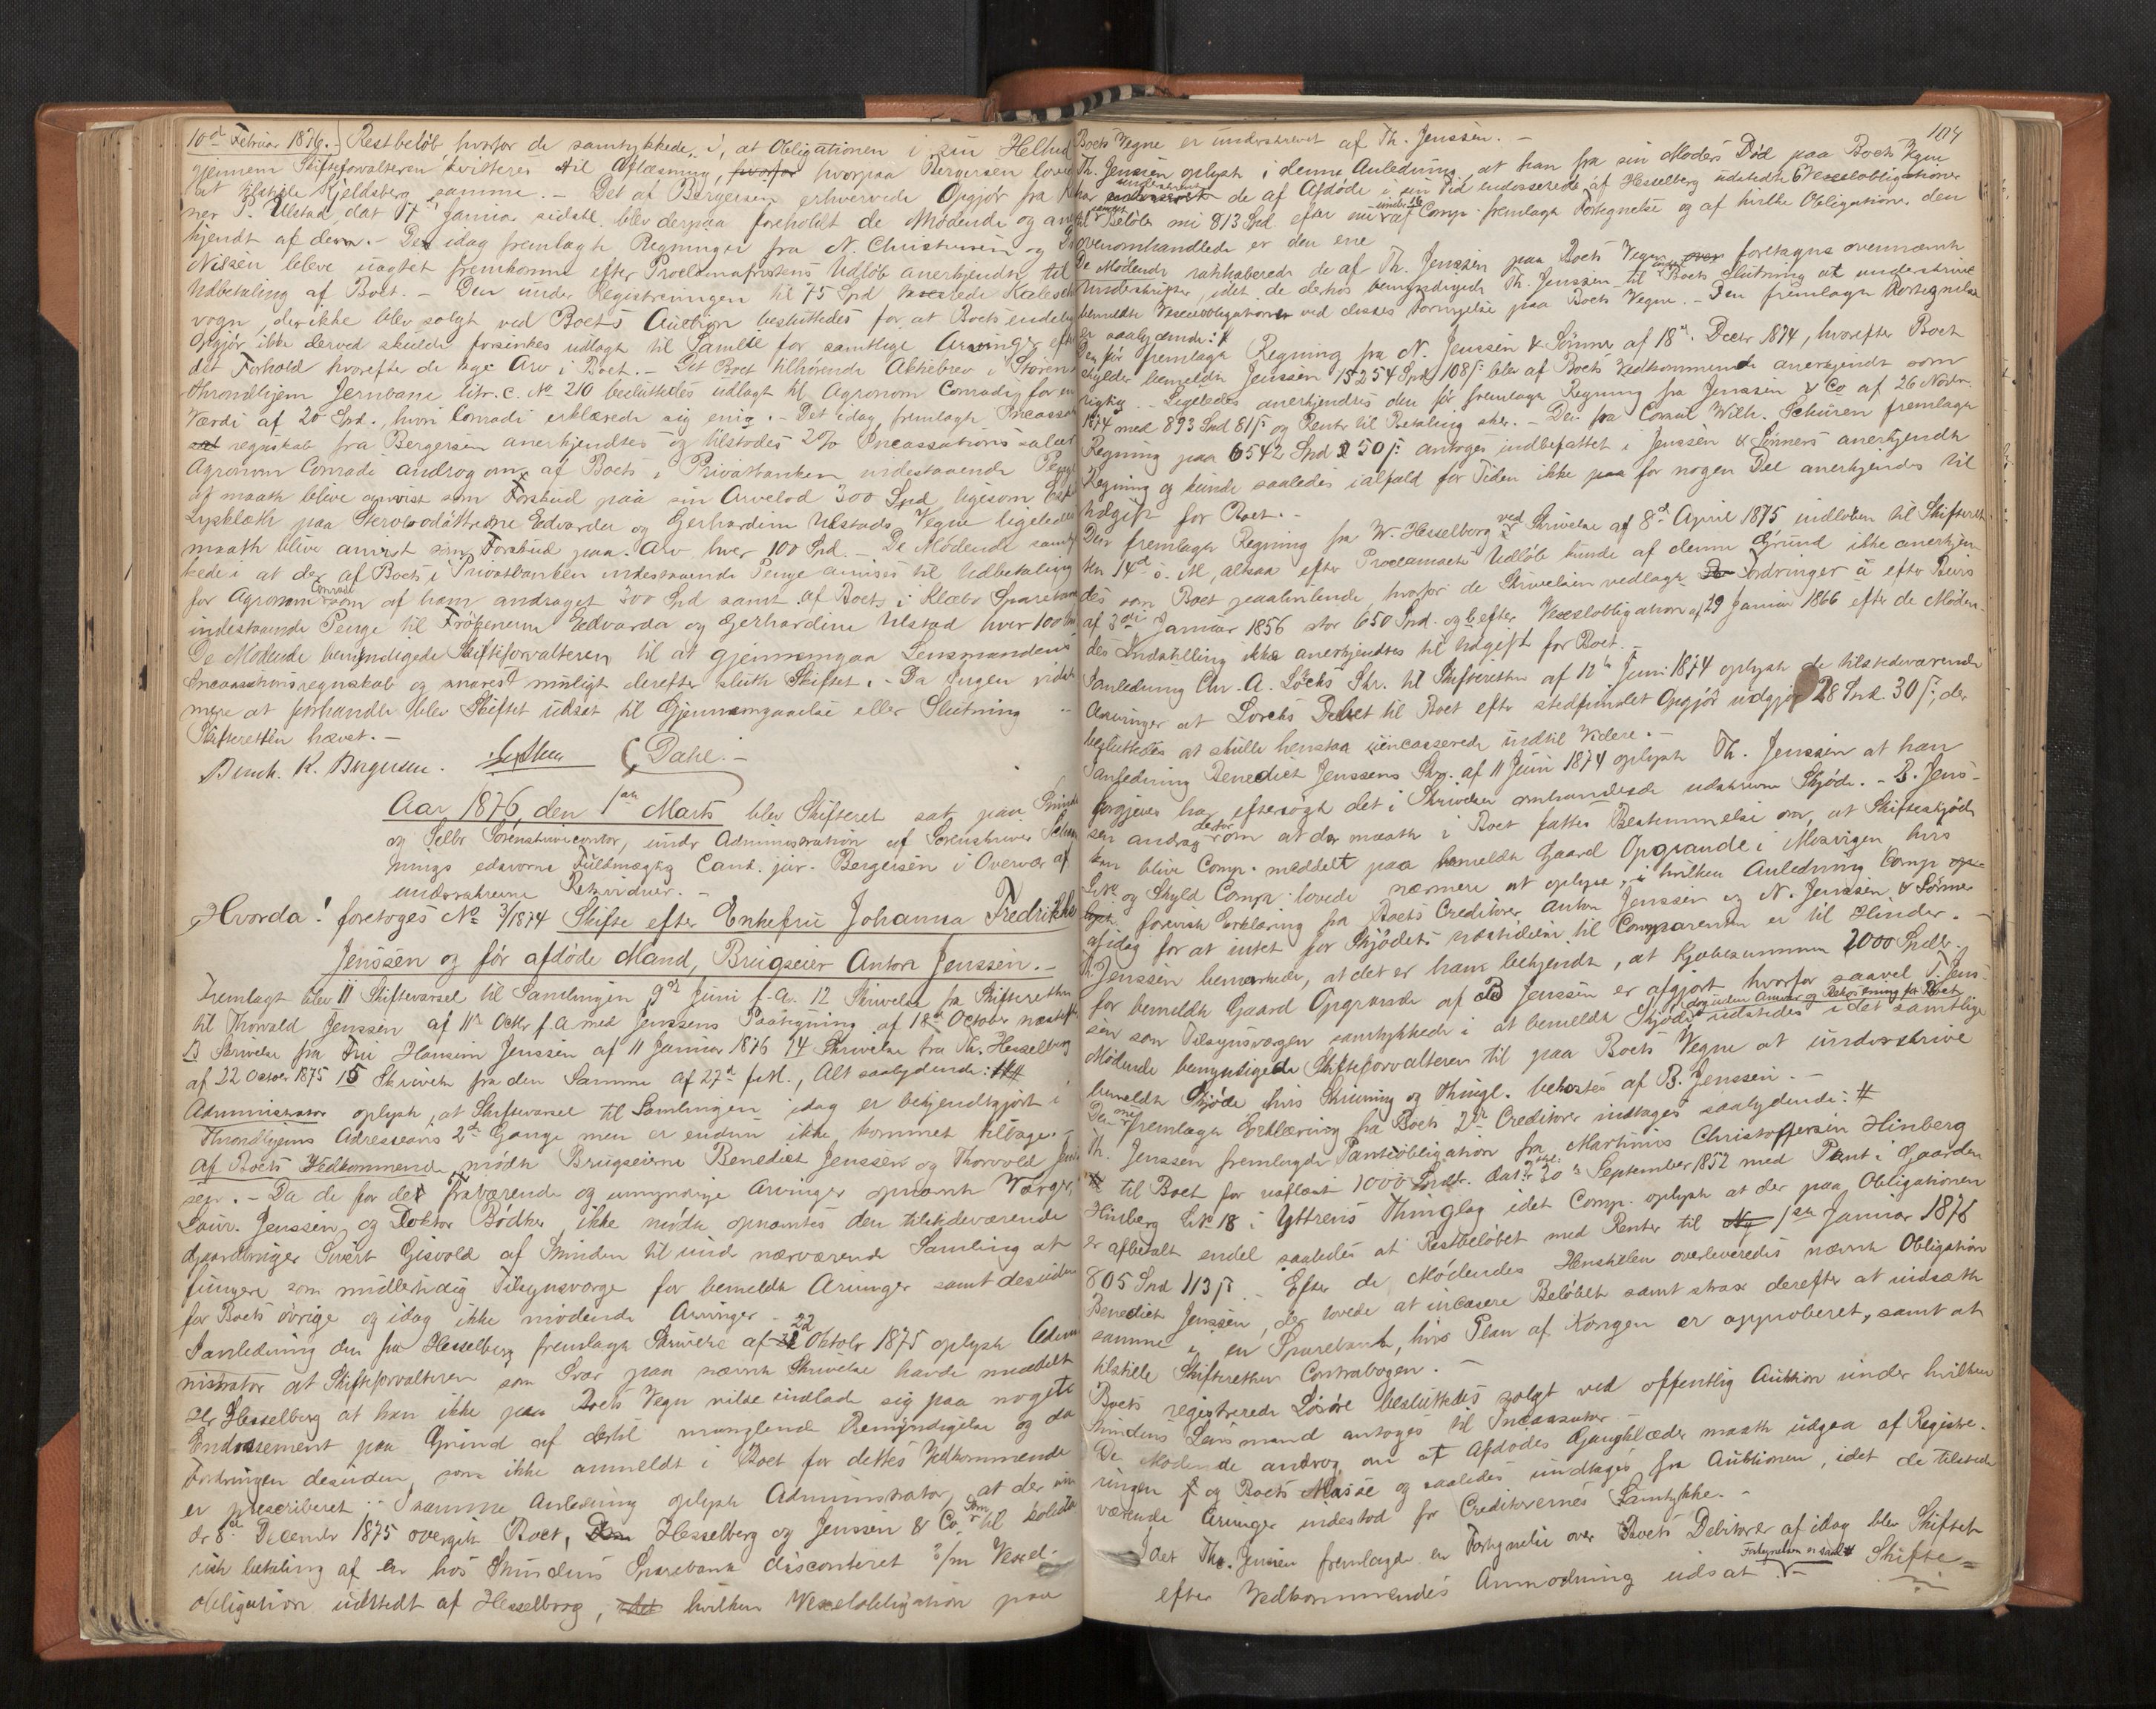 10de Februar 1876. Restbeløb hvorfor de samtykkede i, at Obligationen i sin Helhed
gjennem Skifteforvalteren kvitteres til Aflæsning, hvorfor hvorpaa Bergersen lovede
at tilstille Kjeldsberg samme. – Det af Bergersen erhvervede Opgjør fra
P. Ulstad dat 17de Januar sidstl. blev derpaa foreholdt de Mødende og aner
kjendt af dem. – De idag fremlagte Regninger fra N. Christensen og
Nilsen bleve uagtet fremkomne efter Proclamafristens Udløb anerkjendte til
Udbetaling af Boet. – Den under Registreringen til 75 Spd Kalesch
vogn, der ikke blev solgt ved Boets Auction besluttedes for at Boets endelige
Opgjør ikke derved skulde forsinkes udlagt til Samtlige Arvinger efter
det Forhold hvorefter de tage Arv i Boet. – Det Boet tilhørende Aktiebrev i Støren
Throndhjem Jernbane litr. C. No 210 besluttedes udlagt til Agronom Conradi for en
Værdi af 20 Spd., hvori Conradi erklærede sig enig. – Det idag fremlagte Incassations
regnskab fra Bergersen anerkjendtes og tilstodes 2% Incassationssalær
Agronom Conradi androg om af Boets i Privatbanken indestaaende Penge
at maatte blive anvist som Forskud paa sin Arvelod 300 Spd ligesom
paa Edvarda og Gerhardine Ulstads Vegne ligeledes
maatte blive anvist som Forskud paa Arv hver 100 Spd. – De Mødende samtyk
kede i at der af Boets i Privatbanken indestaaende Penge anvises til Udbetaling
for Agronom Conradi som af ham andraget 300 Spd samt af Boets i Klæbo Sparebank
indestaaende Penge til Frøkenerne Edvarda og Gerhardine Ulstad hver 100
De Mødende bemyndigede Skifteforvalteren til at gjennemgaa Lensmandens
Incassationsregnskab og snarest muligt derefter slutte Skiftet. – Da Ingen vidste
mere at forhandle blev Skiftet udsat til Gjennemgaaelse eller Slutning
Skifteretten hævet. –
K. Bergersen. Dahl. –
Aar 1876, den 1ste Marts blev Skifteret sat paa Strinde
og Selbo Sorenskrivercontor, under Administration af Sorenskriver
edsvorne Fuldmægtig Cand. jur. Bergersen i Overvær af
underskrevne Retsvidner. –
Hvorda! foretoges No 3/1874 Skifte efter Enkefru Johanna Fredrikke
Jenssen og før afdøde Mand, Brugseier Anton Jenssen. –
Fremlagt blev 11 Skiftevarsel til Samlingen 9de Juni f.A. 12 Skrivelse fra Skifteretten
til Thorvald Jenssen af 11te Octbr f.A med Jenssens Paategning af 18de October næstefter
13 Skrivelse fra Fru Hansine Jenssen af 11 Januar 1876 14 Skrivelse fra Th. Hesselberg
af 22 October 1875 15 Skrivelse fra den Samme af 27de f.M., Alt saalydende: ###
Administrator oplyste, at Skiftevarsel til Samlingen idag er bekjendtgjort i
Throndhjems Adresseavis 2de Gange men er endnu ikke kommet tilbage. –
Af Boets Vedkommende mødte Brugseierne Benedict Jenssen og Thorvald Jens
sen. – Da de for de fraværende og umyndige Arvinger opnævnte Værger,
Laur. Jenssen og Doktor Bødtker ikke mødte opnævntes den tilstedeværende
Gaardbruger Sivert Gisvold af Strinden til ved nærværende Samling at
fungere som midlertidig Tilsynsværge for bemeldte Arvinger samt desuden
for Boets øvrige og idag ikke mødende Arvinger. –
I anledning den fra Hesselberg fremlagte Skrivelse af 22 Oktobr 1875 oplyste Admi
nistrator at Skifteforvalteren som Svar paa nævnte Skrivelse havde meddelt
Hr Hesselberg at han ikke paa Boets Vegne vilde indlade sig paa noget
Endossement paa Grund af dertil manglende Bemyndigelse og da
Fordringen desuden, som ikke anmeldt i Boet for dettes Vedkommende
er præscriberet. – I samme Anledning oplyste Administrator, at der un
dr 8de Decembr 1875 overgik Boet, Hesselberg og Jenssen & Co Dom til solida
risk betaling af en hos Strindens Sparebank disconteret 3/m Vexel-
obligation udstedt af Hesselberg, hvilken Vexelobligation paa
104
Boets Vegne er underskrevet af Th. Jenssen. –
Th. Jenssen oplyste i denne Anledning, at han fra sin Moders Død paa Boets Vegne
har underskrevet de af Afdøde i sin Tid endosserede af Hesselberg udstedte 6 Vexelobligationer
til Beløb nu 813 Spd. efter en under 16 af Comp. fremlagt Fortegnelse og af hvilke Obligationer den
ovenomhandlede er den ene
De Mødende ratihaberede de af Th. Jenssen paa Boets Vegne foretagne ovennævnte
Underskrifter, idet de derhos bemyndigede Th. Jenssen til indtil Boets Slutning at underskrive
bemeldte Vexelobligationer ved disses Fornyelse paa Boets Vegne. – Den fremlagte Fortegnelse
er saalydende: #
Den før fremlagte Regning fra N. Jenssen & Sønner af 18de Decbr 1874, hvorefter Boet
skylder bemeldte Jenssen 15254 Spd 108 ß blev af Boets Vedkommende anerkjendt som
rigtig. – Ligeledes anerkjendtes den før fremlagte Regning fra Jenssen & Co af 26 Novbr.
1874 med 893 Spd 81 ß og Renter til Betaling sker. – Den fra Consul Wilh. Schüren fremlagte
Regning paa 6542 Spd 50 ß antoges indbefattet i Jenssen & Sønners anerkjendte
Regning og kunde saaledes ialfald for Tiden ikke paa for nogen Del anerkjendes til
Udgift for Boet. –
Den fremlagte Regning fra W. Hesselberg ved Skrivelse af 8de April 1875, indløben til Skifteret
den 14de s. M, altsaa efter Proclamaets Udløb kunde af denne Grund ikke anerkjen-
des som Boet paahvilende, hvorfor de Skrivelsen vedlagte Fordringer a efter Bevis
af 3die Januar 1856 stor 650 Spd. og b efter Vexelobligation af 29 Januar 1866 efter de Møden-
des Indstilling ikke anerkjendtes til Udgift for Boet. –
I anledning Chr. A. Lorcks Skr. til Skifteretten af 12te Juni 1874 oplyste de tilstedeværende
Arvinger at Lorcks Debet til Boet efter stedfundet Opgjør udgjør 28 Spd. 30 ß, der
besluttedes at skulle henstaa uincasserede indtil Videre. –
I anledning Benedict Jenssens Skr. af 11 Juni 1874 oplyste Th. Jenssen at han
forgjeves har eftersøgt det i Skrivelsen omhandlede udskrevne Skjøde. – B. Jens-
sen androg derfor om at der maatte i Boet fattes Bestemmelse om, at Skifteskjøde
kan blive Comp. meddelt paa bemeldte Gaard Opgrande i Mosvigen hvis
L.No og Skyld Comp. lovede nærmere at oplyse, i hvilken Anledning Comp.
forevist Erklæring fra Boets Creditorer Anton Jenssen og N. Jenssen & Sønner
af idag for at intet for Skjødets Udstedelse til Comparenten er til Hinder. –
Jenssen bemærkede, at det er ham bekjendt, at Kjøbesummen 2000 Spdlr.
for bemeldte Gaard Opgrande af B Jenssen er afgjort hvorfor saavel T. Jens-
sen som Tilsynsværgen samtykkede i at bemeldte Skjøde udstedes dog uden Ansvar og Bekostning for Boet idet samtlige
Mødende bemyndigede Skifteforvalteren til paa Boets Vegne at underskrive
bemeldte Skjøde hvis Skrivning og Thingl. bekostes af B. Jenssen. –
Den fremlagte Erklæring fra Boets 2de Creditorer indtages saalydende: #
Th. Jenssen fremlagde Pantobligation fra Martinus Christoffersen Hinberg
til Boet for uaflagt 1000 Spdlr. dat. 30te September 1852 med Pant i Gaarden
Hinberg L.No 18 i Ytterens Thinglag idet Comp. oplyste at der paa Obligationen
er afbetalt endel saaledes at Restbeløbet med Renter til 1ste Januar 1876
805 Spd 113 ß. – Efter de Mødendes Henstillen overleveredes nævnte Obligation
Benedict Jenssen, der lovede at incasere Beløbet samt strax derefter at indsætte
samme i en Sparebank, hvis Plan af Kongen er approberet, samt at
tilstille Skifteretten Contrabogen. –
Boets registrerede Løsøre besluttedes solgt ved offentlig Auktion under hvilken
Strindens Lensmand antoges til Incassator –
De Mødende androg om at Afdødes Gangklæder maatte udgaa af Registre-
ringen og Boets Masse og saaledes undtages fra Auktionen, idet de tilstede
værende Arvinger indestod for Creditorernes Samtykke. –
Idet Th. Jenssen fremlagde en Fortegnelse over Boets Debitorer af idag blev Skiftet
efter Vedkommendes Anmodning udsat – Fortegnelsen er saal # Skifte=